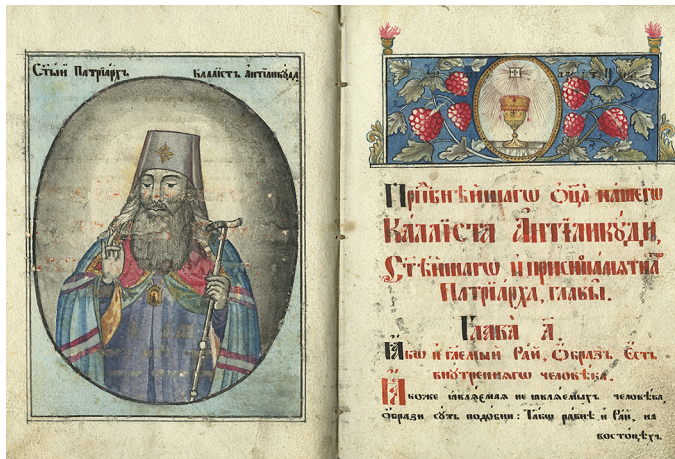 Ст҃ый Патрїархъ Каллїстъ Антїликуда
Прп҃бнѣйшагѡ Ѻц҃а нашегѡ
Каллїста Антїликуди,
Ст҃ѣйшагѡ и присн҃ѡпамѧтнагѡ
Патрїарха, главы̀.
Глава А҃.
Ꙗкѡ и҆ глаемый Рай, Ѻбразъ Есть
внꙋтреннѧгѡ человѣка.
Ꙗкоже ꙗвлѧемаѧ не ꙗвлѧемыхъ человѣка,
Ѻбрази сꙋть подобни: Такѡ равнѣ и Рай, на
востоцѣхъ